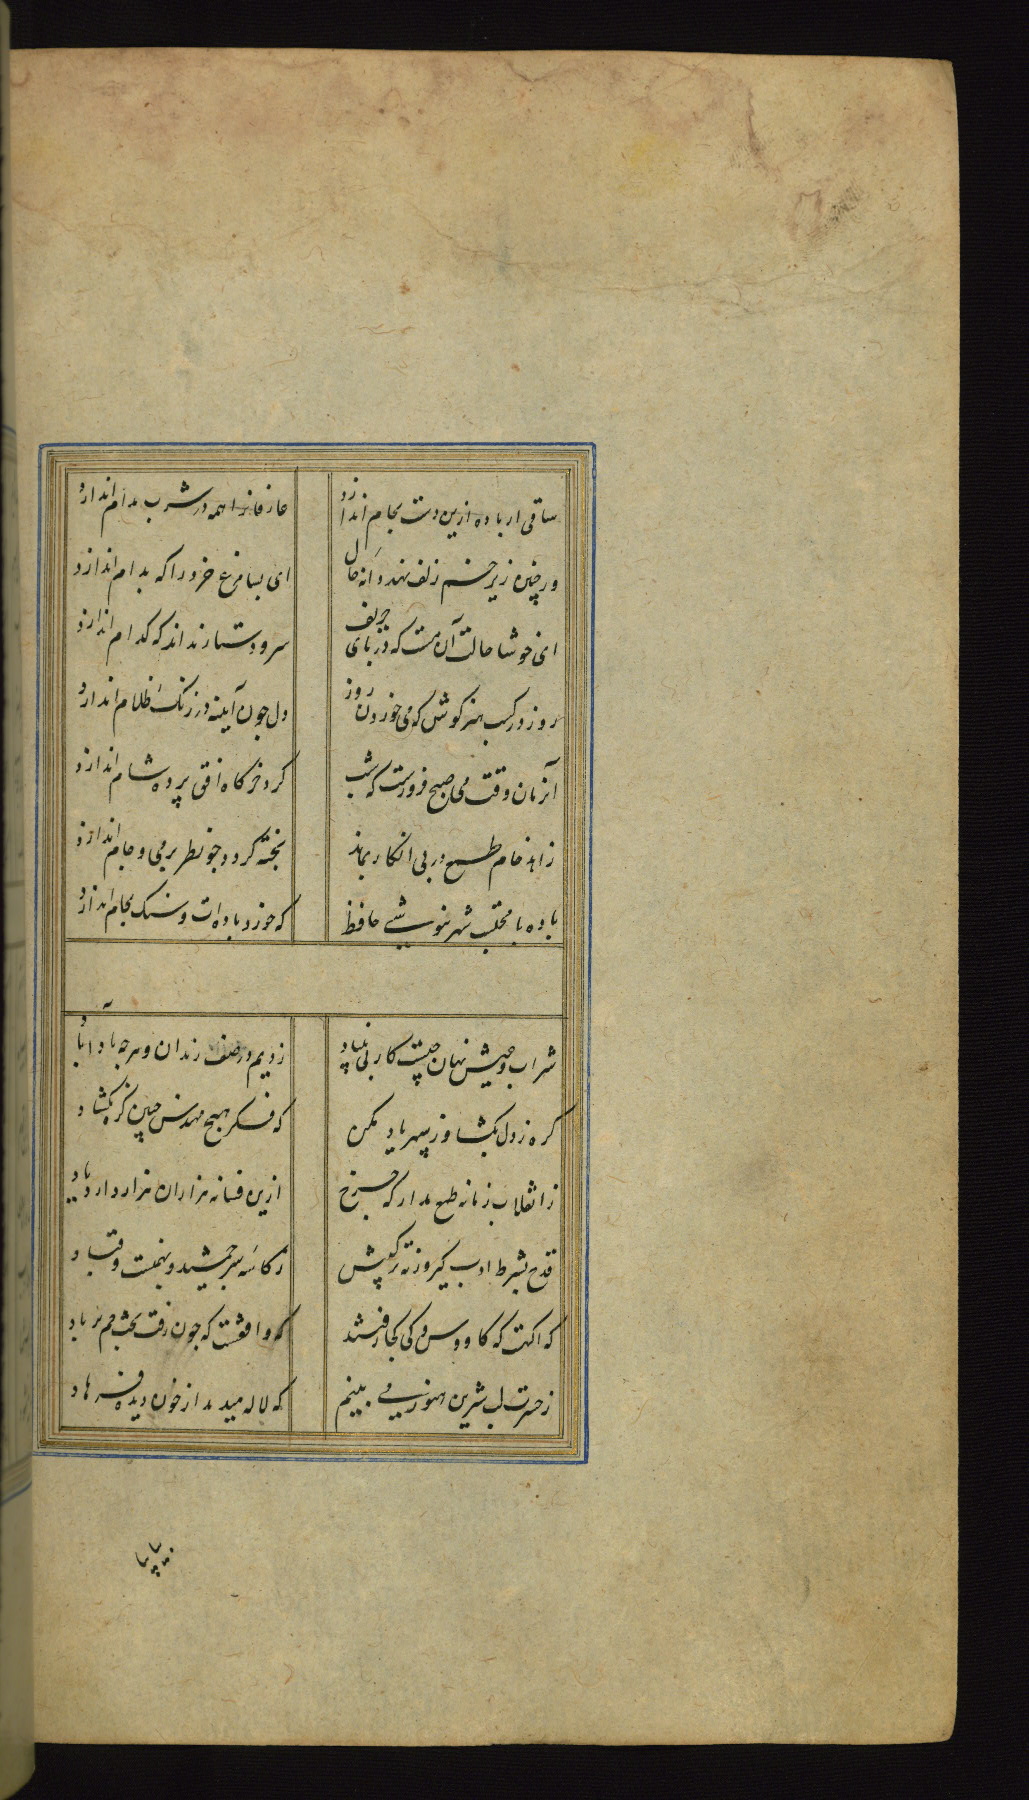 ساقی ار باده ازین دست بجام اندازد عارفانرا همه در شرب مدام اندازد
ور چنین زیر خم زلف نهد دانه خال ای بسا مرغ خرد را که بدام اندازد
ای خوشا حالت آن مست که در پای حریف سر و دستار نداند که کدام اندازد
روز در کسب هنر کوش که می خوردن روز دل چون آینه در زنگ ظلام اندازد
آنزمان وقت می صبح فروزست که شب گرد خرگاه افق پرده شام اندازد
زاهد خام طمع در پی انکار بماند پخته گردد چو نظر بر می و جام اندازد
باده با محتسب شهر ننوشی حافظ که خورد باده ات و سنگ بجام اندازد
شراب و عیش نهان چیست کار بی بنیاد زدیم در صف رندان و هر چه بادا باد
گره ز دل بگشا و ز سپهر یاد مکن که فکر هیچ مهندس چنین گره نگشاد
ز انقلاب زمانه طمع مدار که چرخ ازین فسانه هزاران هزار دارد یاد
قدح بشرط ادب گیر و زنکه ترکیبش ز کاسه سر جمشید و بهمنست و قباد
که آگهست که کاووس و کی کجا رفتند که واقفست که چون رفت تخت جم بر باد
ز حسرت لب شیرین هنوز می بینم که لاله میدمد از خون دیده فرهاد
بیا بیا